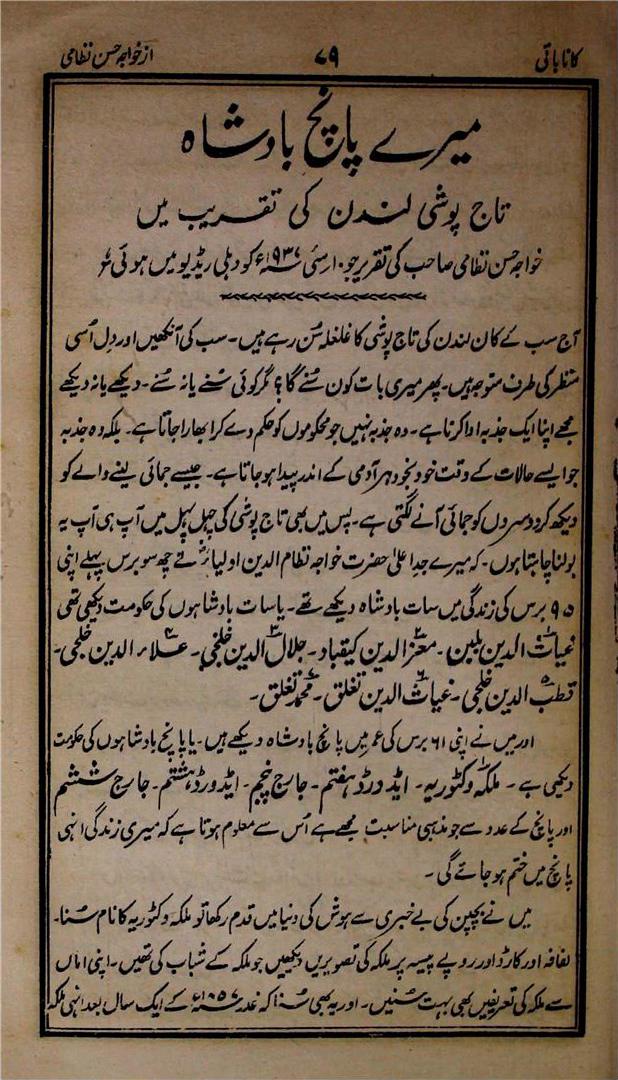 کانا باتی ۷۹ از خواجہ حسن نظامی
میرے پانچ بادشاہ
تاج پوشی لندن کی تقریب میں
خواجہ حسن نظامی صاحب کی تقریر جو ۱۰ مئی ۱۹۳۷ء کو دہلی ریڈیو میں ہوئی
آج سب کے کان لندن کی تاج پوشی کا غلغلہ سُن رہے ہیں۔ سب کی آنکھیں اور دل اُسی
منظر کی طرف متوجہ ہیں۔ پھر میری بات کون سُنے گا؟ مگر کوئی سُنے یا نہ سُنے۔ دیکھے یا نہ دیکھے
مجھے اپنا ایک جذبہ ادا کرنا ہے۔ وہ جذبہ نہیں جو محکوموں کو حکم دے کر ابھارا جاتا ہے۔ بلکہ وہ جذبہ
جو ایسے حالات کے وقت خود بخود ہر آدمی کے اندر پیدا ہو جاتا ہے۔ جیسے جمائی لینے والے کو
دیکھ کر دوسروں کو جمائی آنے لگتی ہے۔ پس میں بھی تاج پوشی کی چہل پہل میں آپ ہی آپ یہ
بولنا چاہتا ہوں۔ کہ میرے جد اعلیٰ حضرت خواجہ نظام الدین اولیاءؒ نے چھ سو برس پہلے اپنی
۹۵ برس کی زندگی میں سات بادشاہ دیکھے تھے۔ یا سات بادشاہوں کی حکومت دیکھی تھی
غیاث الدین بلبن۔ معز الدین کیقباد۔ جلال الدین خلجی۔ علاء الدین خلجی۔
قطب الدین خلجی۔ غیاث الدین تغلق۔ محمد تغلق۔
اور میں نے اپنی ۶۱ برس کی عمر میں پانچ بادشاہ دیکھے ہیں۔ یا پانچ بادشاہوں کی حکومت
دیکھی ہے۔ ملکہ وکٹوریہ۔ ایڈورڈ ہفتم۔ جارج پنجم۔ ایڈورڈ ہشتم۔ جارج ششم
اور پانچ کے عدد سے جو مذہبی مناسبت مجھے ہے اُس سے معلوم ہوتا ہے کہ میری زندگی انہی
پانچ میں ختم ہو جائے گی۔
میں نے بچپن کی بے خبری سے ہوش کی دنیا میں قدم رکھا تو ملکہ وکٹوریہ کا نام سُنا۔
لفافہ اور کارڈ اور روپے پیسہ پر ملکہ کی تصویریں دیکھیں جو ملکہ کے شباب کی تھیں۔ اپنی اماں
سے ملکہ کی تعریفیں بھی بہت سنیں۔ اور یہ بھی سُنا کہ غدر ۱۸۵۷ء کے ایک سال بعد انہی ملکہ